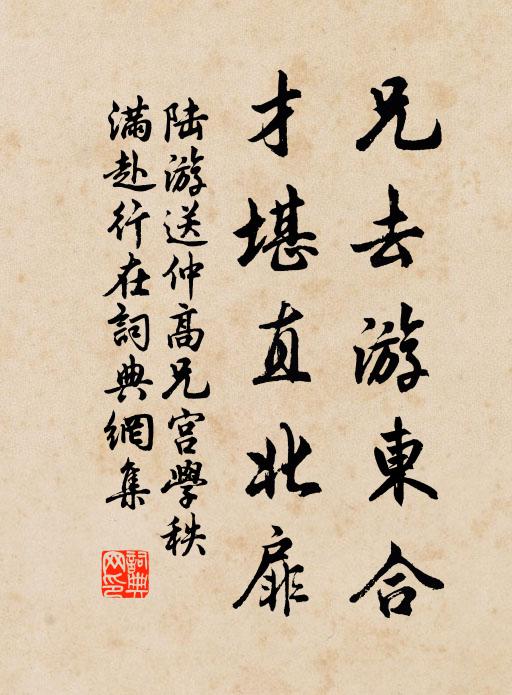 兄去游東合
才堪直北扉
陆游送仲高兄宫學秩
滿赴行在詞典網集
詞典網印